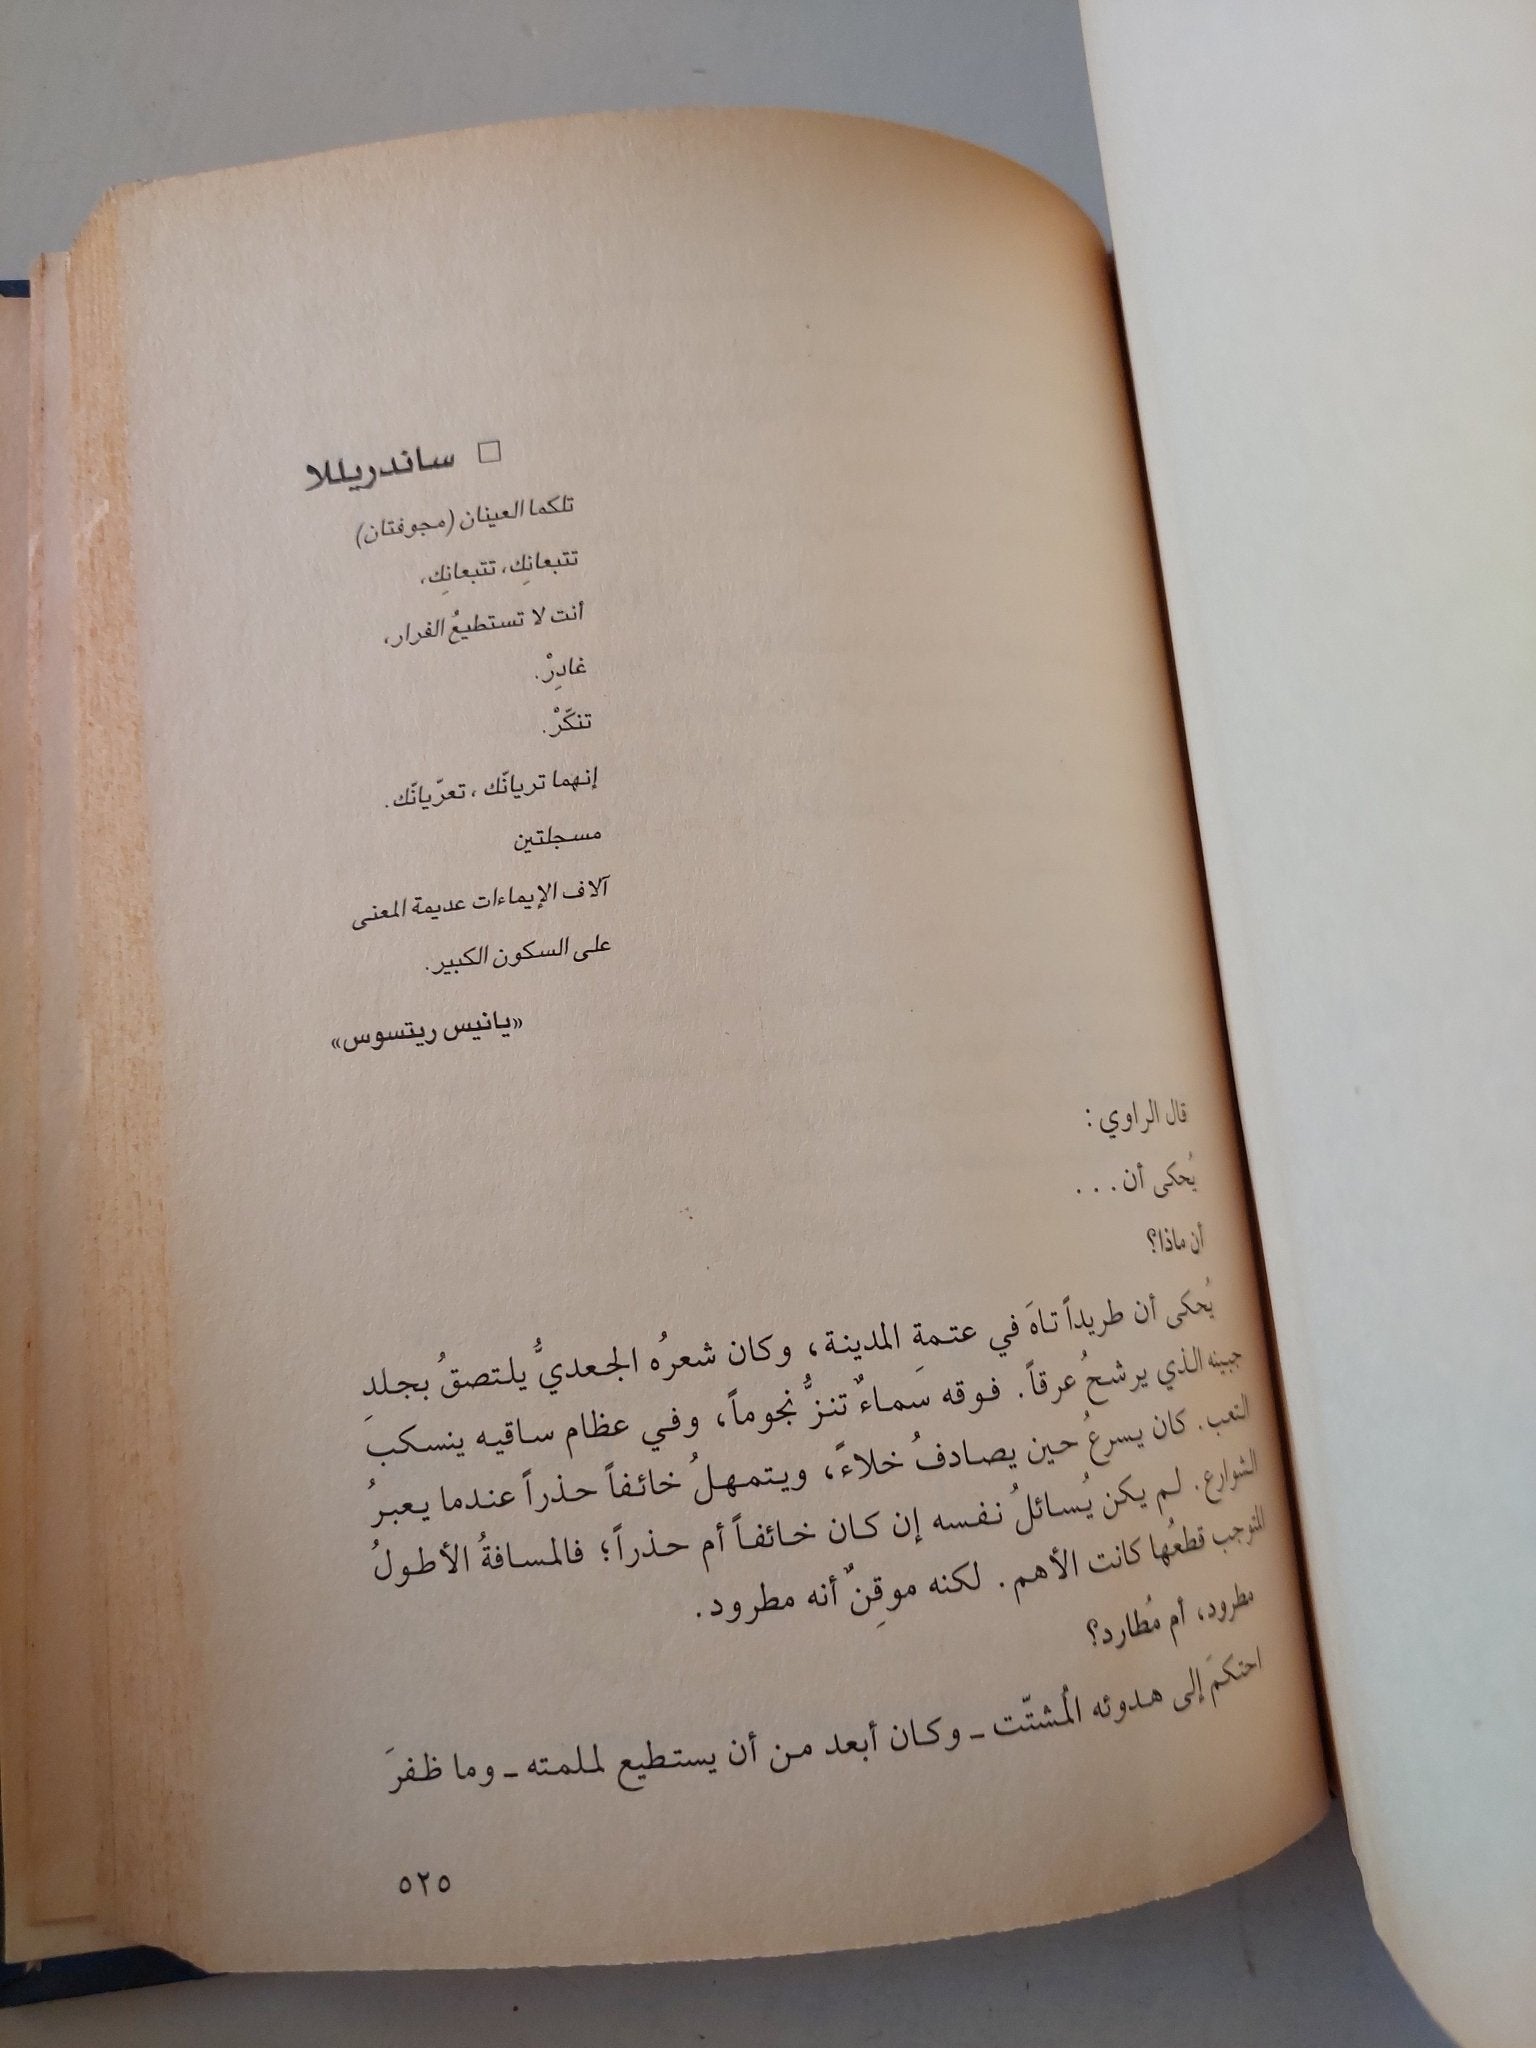 □ ساندريللا
تلكما العينان (مجوفتان)
تتبعانِك، تتبعانِك،
أنت لا تستطيعُ الفرار،
غادِرْ.
تنكّرْ.
إنهما تريانّك، تعرّيانّك.
مسجلتين
آلاف الإيماءات عديمة المعنى
على السكون الكبير.
«يانيس ريتسوس»
قال الراوي:
يُحكى أن...
أن ماذا؟
يُحكى أن طريداً تاهَ في عتمةِ المدينة، وكان شعرُه الجعديُّ يلتصقُ بجلدِ
جبينه الذي يرشحُ عرقاً. فوقه سَماءٌ تنزُّ نجوماً، وفي عظام ساقيه ينسكبَ
التعب. كان يسرعُ حين يصادفُ خلاءً، ويتمهلُ خائفاً حذراً عندما يعبرُ
الشوارع. لم يكن يُسائلُ نفسه إن كان خائفاً أم حذراً؛ فالمسافةُ الأطولُ
المتوجب قطعُها كانت الأهم. لكنه موقِنٌ أنه مطرود.
مطرود، أم مُطارد؟
احتكمَ إلى هدوئه المُشتّت ـ وكان أبعد من أن يستطيع لملمته ـ وما ظفرَ
٥٢٥